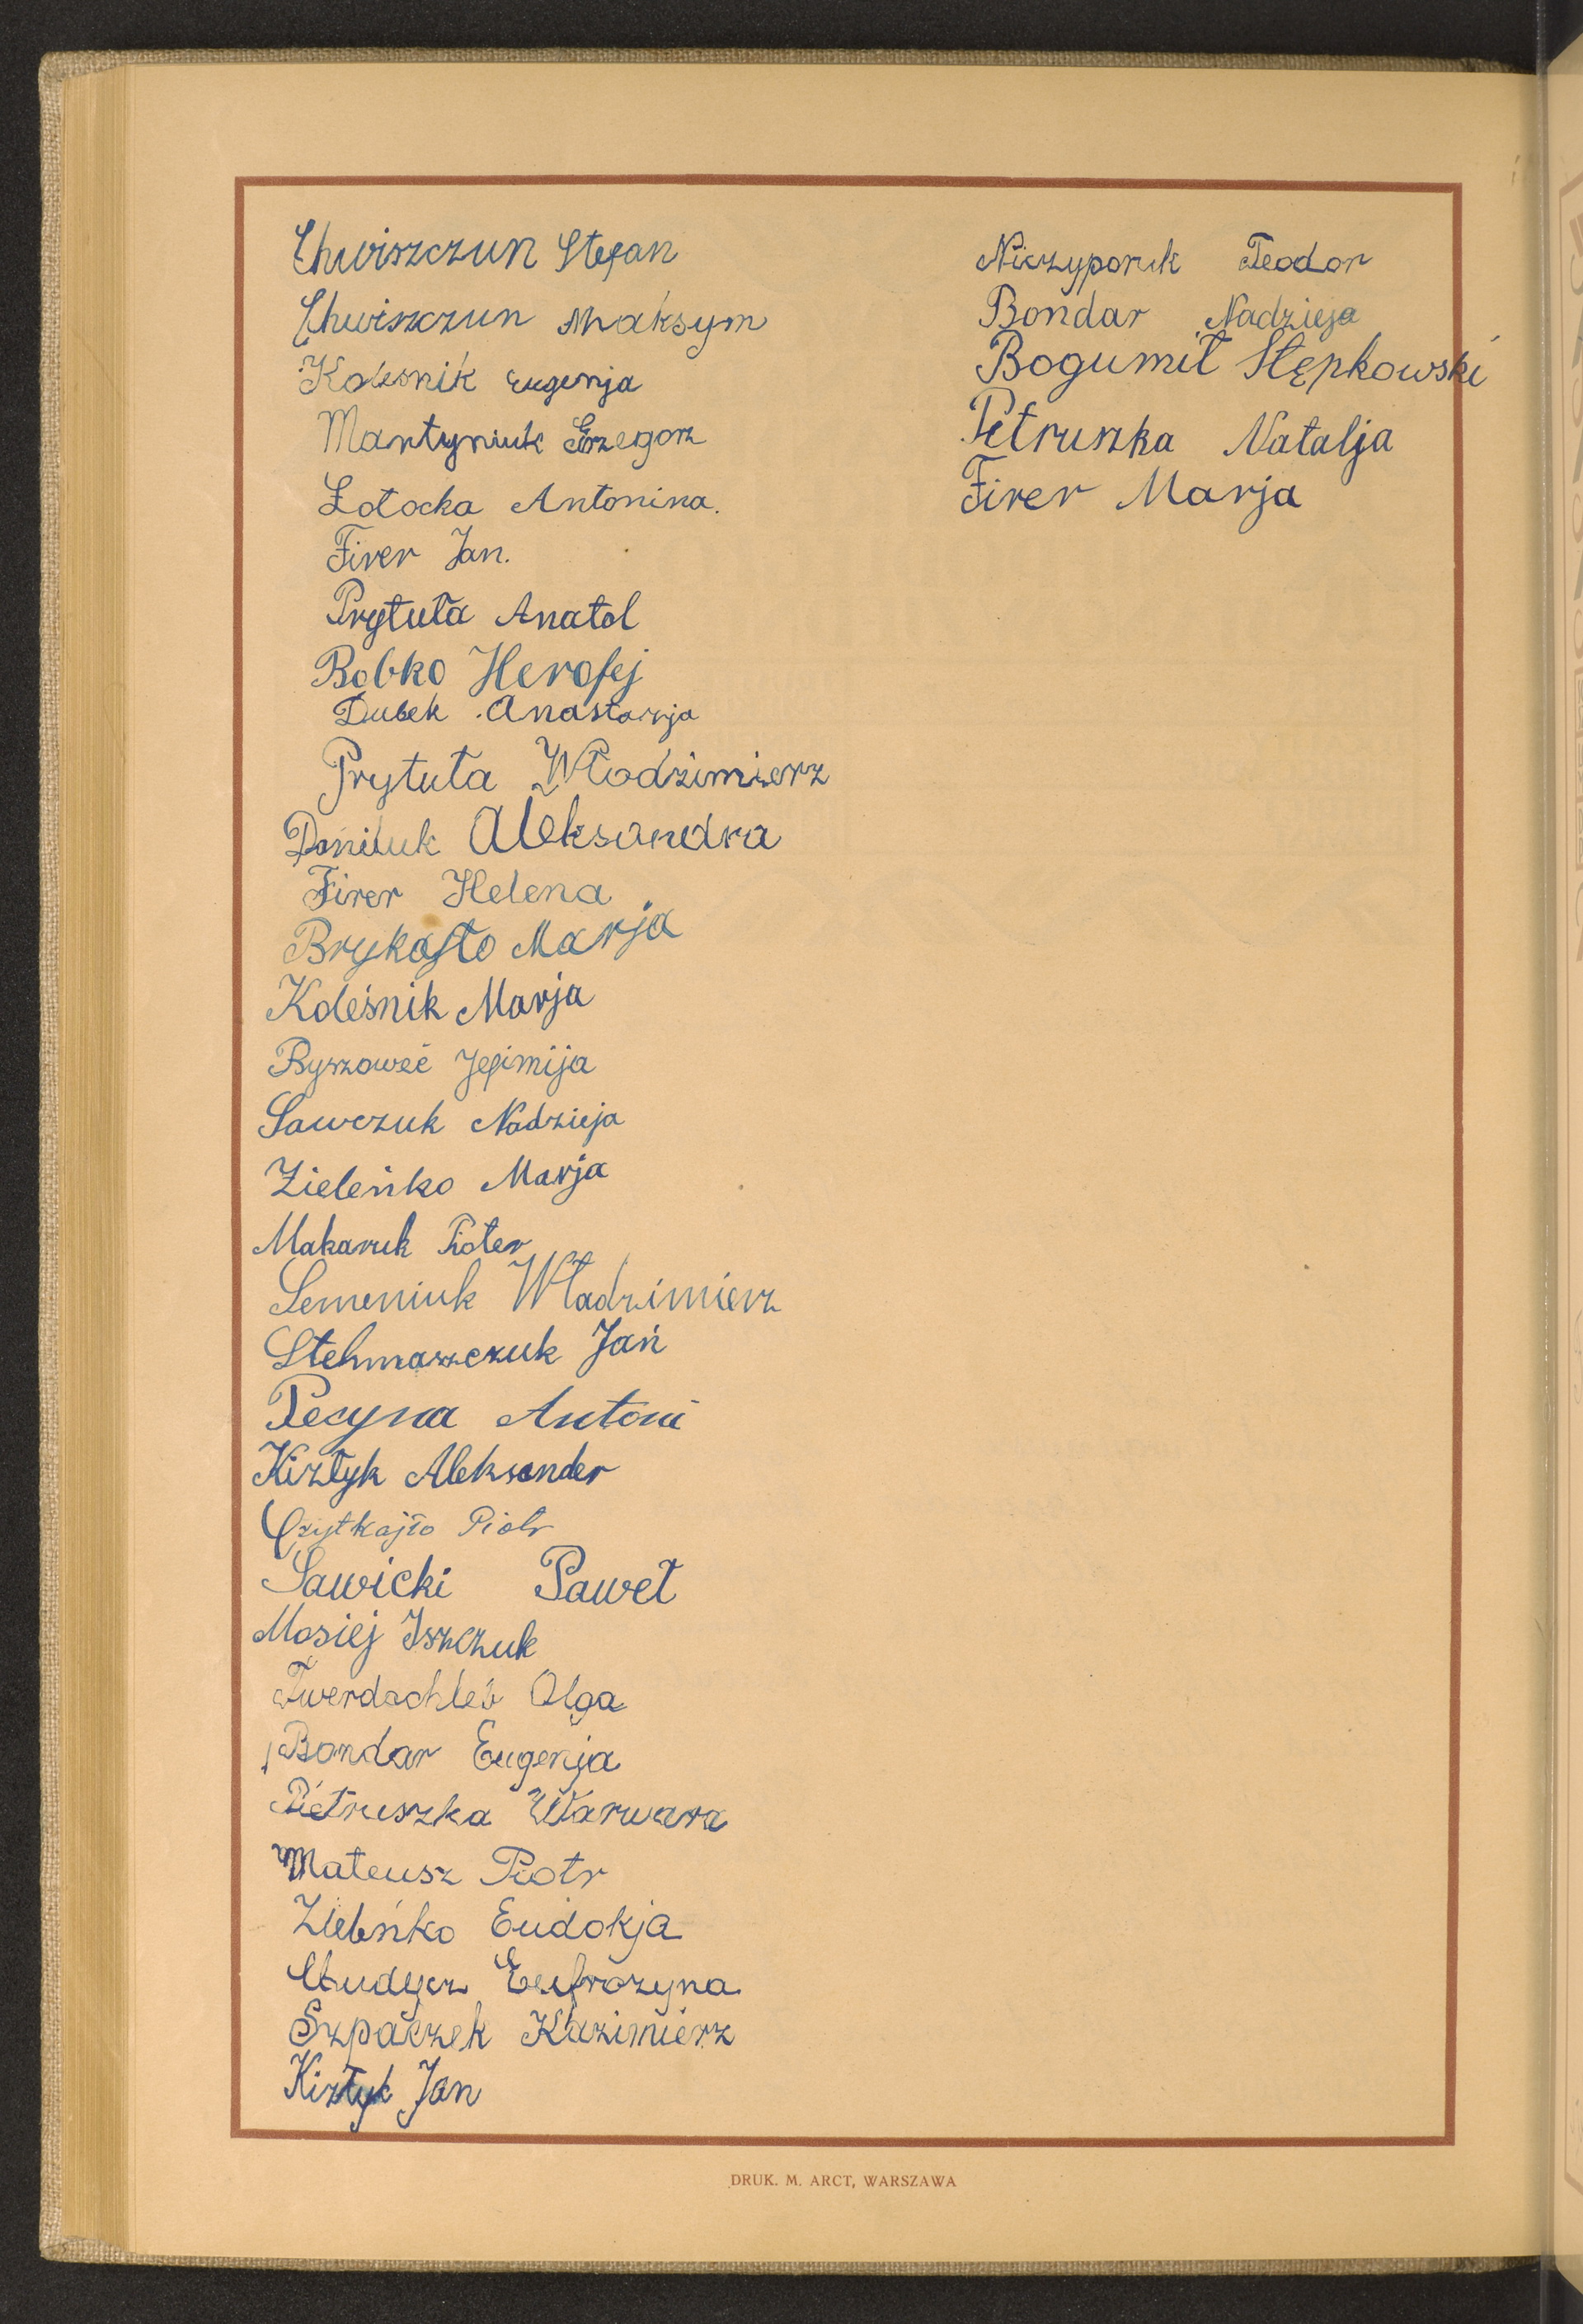 Chwiszczun Stefan
Chwiszczun Maksym
Kolesnik Eugenja
Martyniuk Grzegorz
Łotocka Antonina.
Firer Jan.
Prytuła Anatol
Bobko Herofej
Dubek Anastazja
Prytuła Włodzimierz
Daniluk Aleksandra
Firer Helena
Brykajło Marja
Koleśnik Marja
Ryszoweć Jefimija
Sawczuk Nadzieja
Zieleńko Marja
Makaruk Pioter
Semeniuk Władzimierz
Stehmaszczuk Jań
Pecyna Antoni
Kiztyk Aleksander
Piotr
Sawicki Paweł
Mosiej Iszczuk
Twerdochleb Olga
Bondar Eugenja
Pietruszka Warwara
Mateusz Piotr
Zieleńko Eudokja
Eufrozyna
Szpaczek Kazimierz
Kiztyk Jan
Niczyporuk Teodor
Bondar Nadzieja
Bogumił Stępkowski
Petruszka Natalja
Firer Marja
DRUK. M. ARCT, WARSZAWA